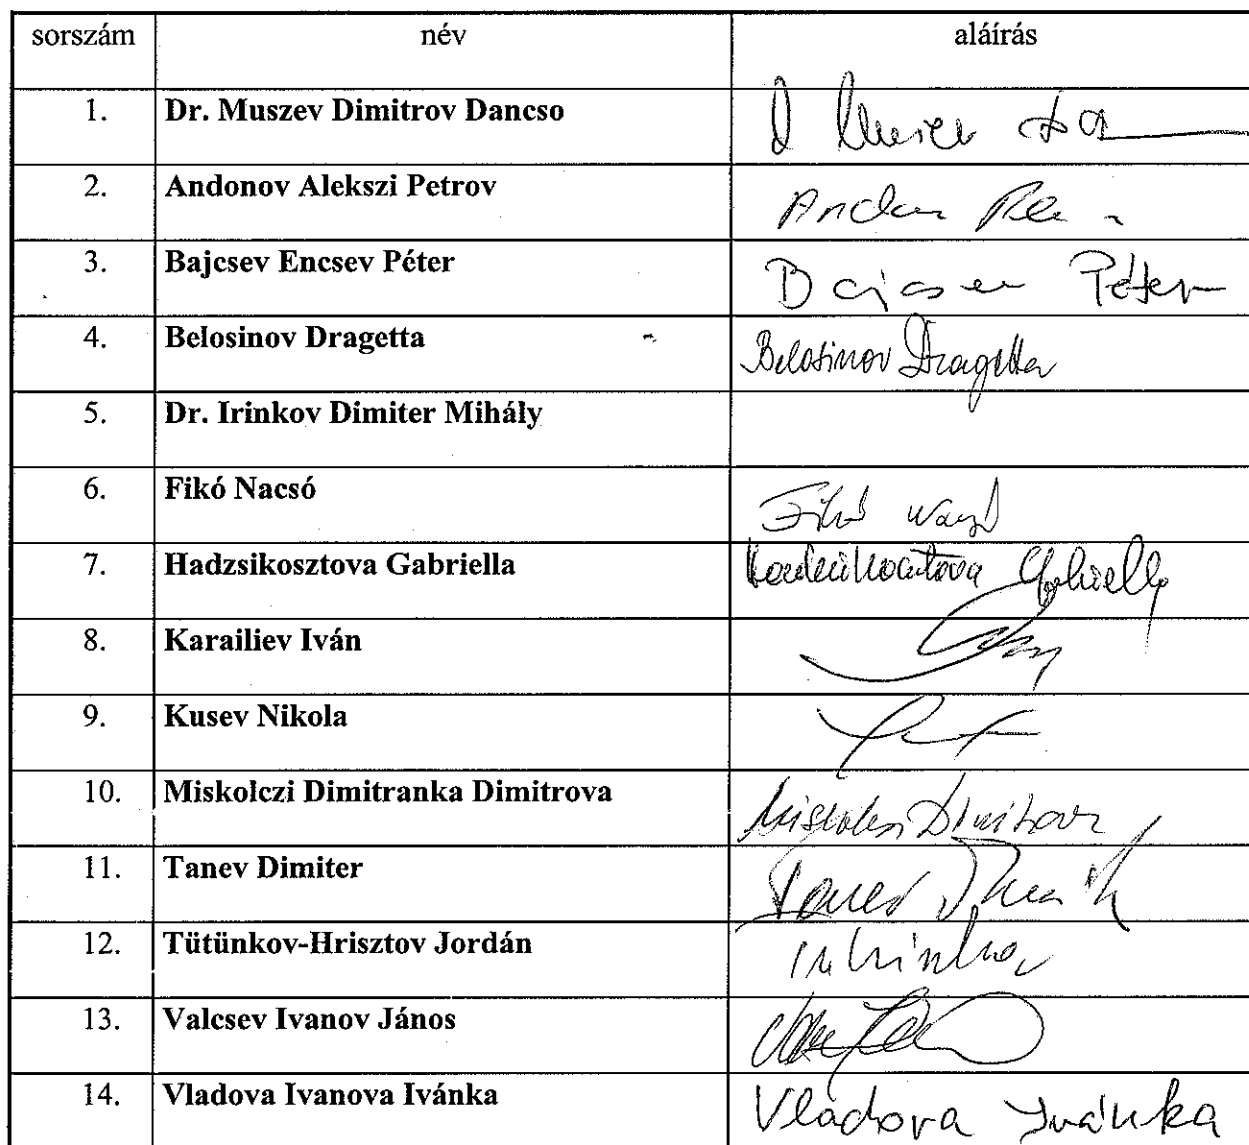 sorszám név aláírás
1. Dr. Muszev Dimitrov Dancso
2. Andonov Alekszi Petrov
3. Bajcsev Encsev Péter Bajcsev Péter
4. Belosinov Dragetta Belosinov Dragetta
5. Dr. Irinkov Dimiter Mihály
6. Fikó Nacsó Fikó Nacsó
7. Hadzsikosztova Gabriella Hadzsikosztova Gabriella
8. Karailiev Iván
9. Kusev Nikola
10. Miskolczi Dimitranka Dimitrova
11. Tanev Dimiter Tanev
12. Tütünkov-Hrisztov Jordán
13. Valcsev Ivanov János
14. Vladova Ivanova Ivánka Vladova Ivánka